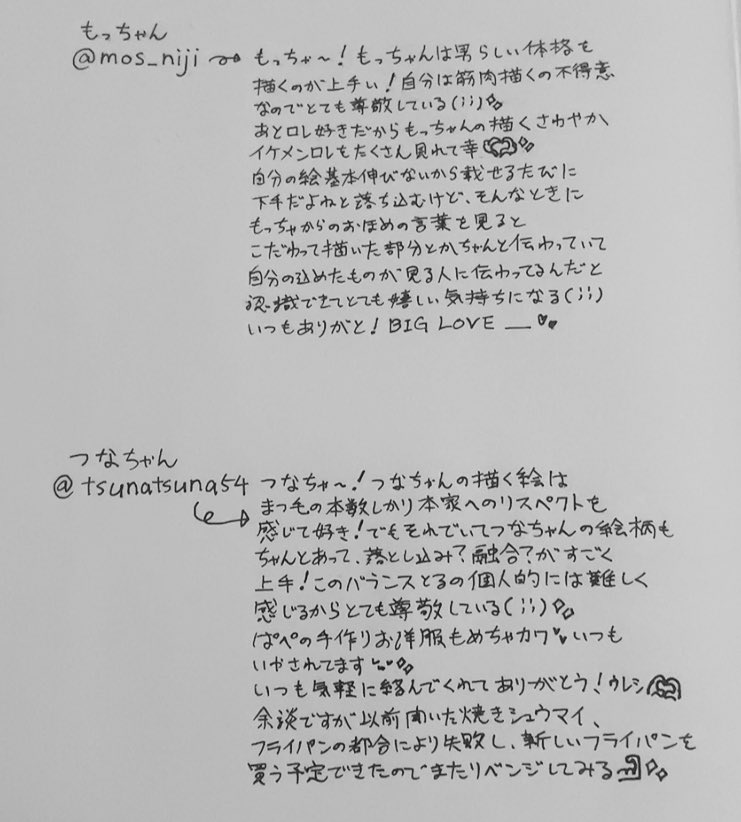 もっちゃん
@mos_niji → もっちゃ〜！もっちゃんは男らしい体格を
描くのが上手い！自分は筋肉描くの不得意
なのでとても尊敬している(；；)
あとロレ好きだからもっちゃんの描くさわやか
イケメンロレもたくさん見れて幸
自分の絵基本伸びないから載せるたびに
下手だよねと落ち込むけど、そんなときに
もっちゃからのおほめの言葉を見ると
こだわって描いた部分とかちゃんと伝わっていて
自分の込めたものが見る人に伝わってるんだと
認識できてとても嬉しい気持ちになる(；；)
いつもありがと！BIG LOVE __
つなちゃん
@tsunatsuna54 つなちゃ〜！つなちゃんの描く絵は
まつ毛の本数しかり本家へのリスペクトを
感じて好き！でもそれでいてつなちゃんの絵柄も
ちゃんとあって、落とし込み？融合？がすごく
上手！このバランスとるの個人的には難しく
感じるからとても尊敬している(；；)
ぱぺの手作りお洋服もめちゃカワ いつも
いやされてます
いつも気軽に絡んでくれてありがとう！ウレシ
余談ですが以前聞いた焼きシュウマイ、
フライパンの都合により失敗し、新しいフライパンを
買う予定できたのでまたリベンジしてみる